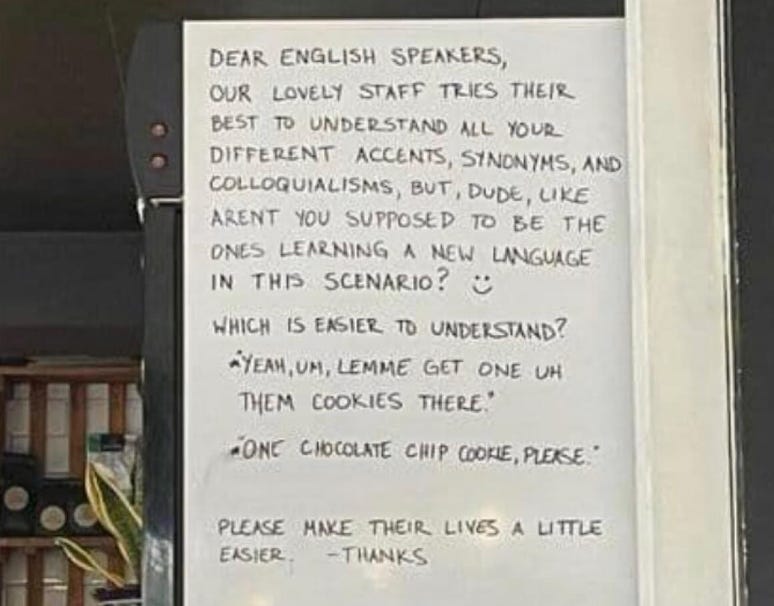 DEAR ENGLISH SPEAKERS,
OUR LOVELY STAFF TRIES THEIR
BEST TO UNDERSTAND ALL YOUR
DIFFERENT ACCENTS, SYNONYMS, AND
COLLOQUIALISMS, BUT, DUDE, LIKE
ARENT YOU SUPPOSED TO BE THE
ONES LEARNING A NEW LANGUAGE
IN THIS SCENARIO? :)
WHICH IS EASIER TO UNDERSTAND?
"YEAH, UM, LEMME GET ONE UH
THEM COOKIES THERE."
"ONE CHOCOLATE CHIP COOKIE, PLEASE."
PLEASE MAKE THEIR LIVES A LITTLE
EASIER. -THANKS